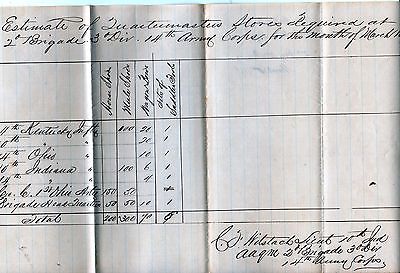 Estimate of Quartermasters Stores Required at
2d Brigade 3d Div. 14th Army Corps. for the month of March
Horse Shoes Mule Shoes Wagon
4th Kentucky Infty 100 20 1
" 20 1
14th Ohio " 10 1
10th Indiana " 100 6 1
" 4 1
C. 1st Ohio Arty 150 50
Brigade Head Quarters 50 50 10 1
Total 200 300 70
C. F. Wilstach Lieut 10th Ind
A A Q M 2d Brigade 3d Div
14th Army Corps